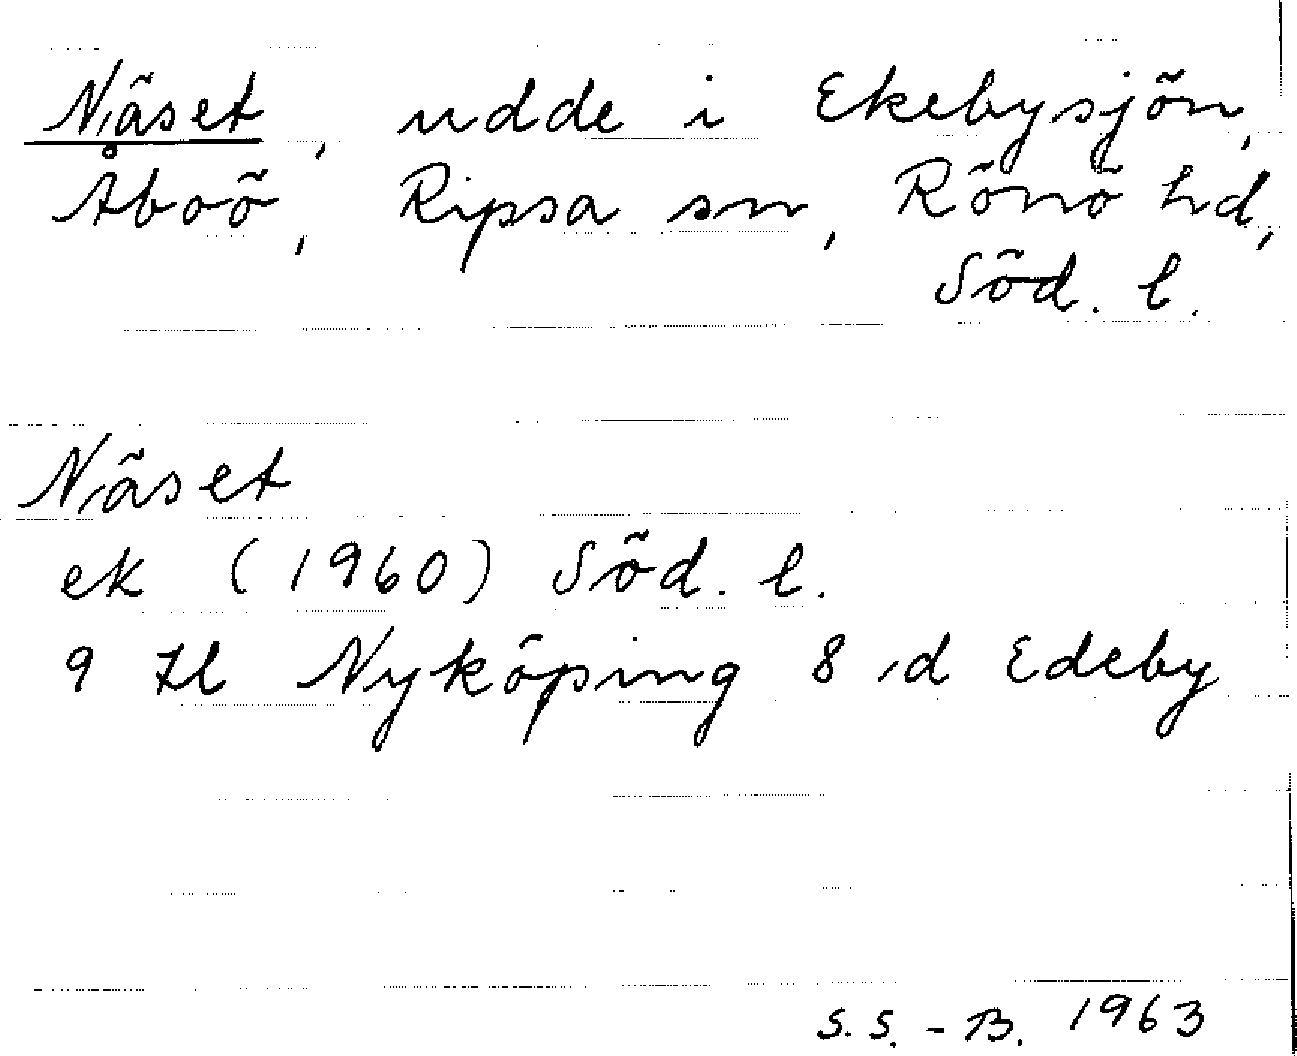 Näset, udde i Ekebysjön,
Åboö, Ripsa sn, Rönö hd,
Söd. l.
Näset
ek (1960) Söd. l.
9 H Nyköping 8 d Edeby
S. S. - B. 1963